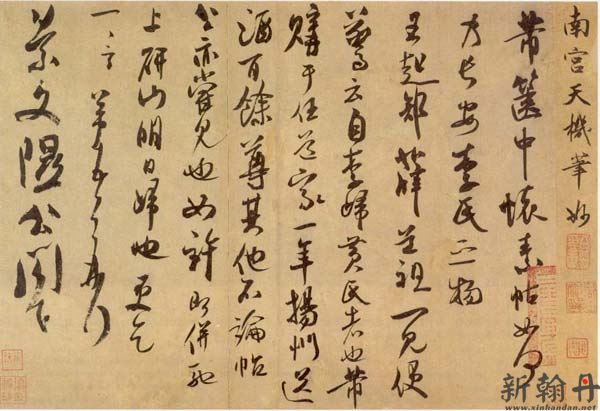 南宫天機筆妙
芾篋中懷素帖如何
乃長安李氏之物
王起部薛道祖一見便
驚云自李歸黄氏者也芾
購于任道家一年揚州送
酒百餘尊其他不論帖
公亦嘗見也如許即併馳
上研山明日歸也更乞
一言芾頓首再拜
景文隰公閣下
新翰丹
www.xinhandan.net